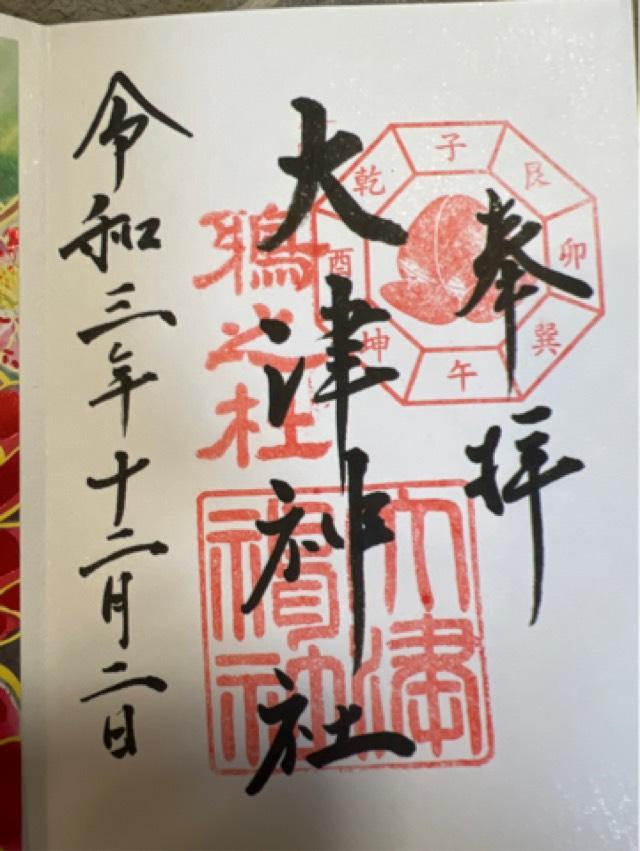 奉拝
大津神社
令和三年十二月二日
子
艮
卯
巽
午
坤
酉
乾
之杜
大津